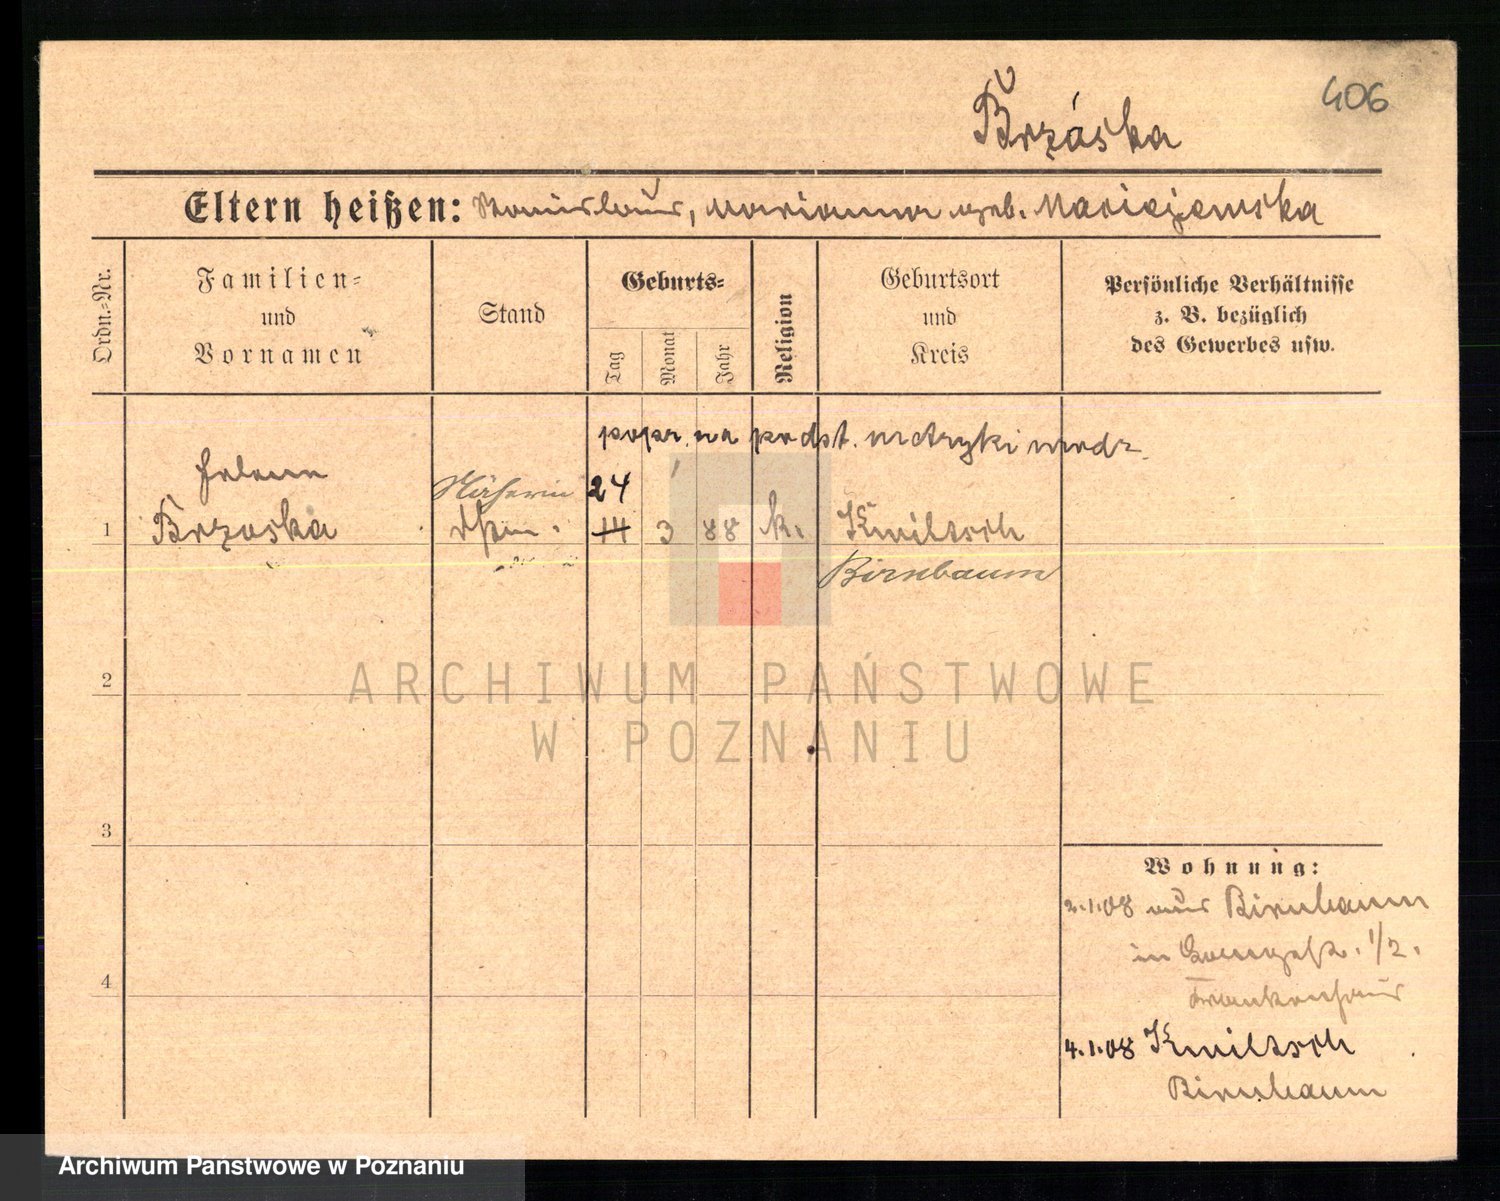 406
Brzáska
Eltern heißen: Stanislaus, Marianna geb. Maciejewska
Ordn.-Nr.
Familien-
und
Vornamen
Stand
Geburts-
Tag
Monat
Jahr
Religion
Geburtsort
und
Kreis
Persönliche Verhältnisse
z. B. bezüglich
des Gewerbes usw.
popr. na podst. metryki urodz.
Helene
Näherin
24
1
Brzoska
14 3 88 k. Kwiltsch
Birnbaum
2
3
4
ARCHIWUM PAŃSTWOWE
W POZNANIU
Wohnung:
2.1.08 aus Birnbaum
in 1/2.
Krankenhaus
4.1.08 Kwiltsch
Birnbaum
Archiwum Państwowe w Poznaniu